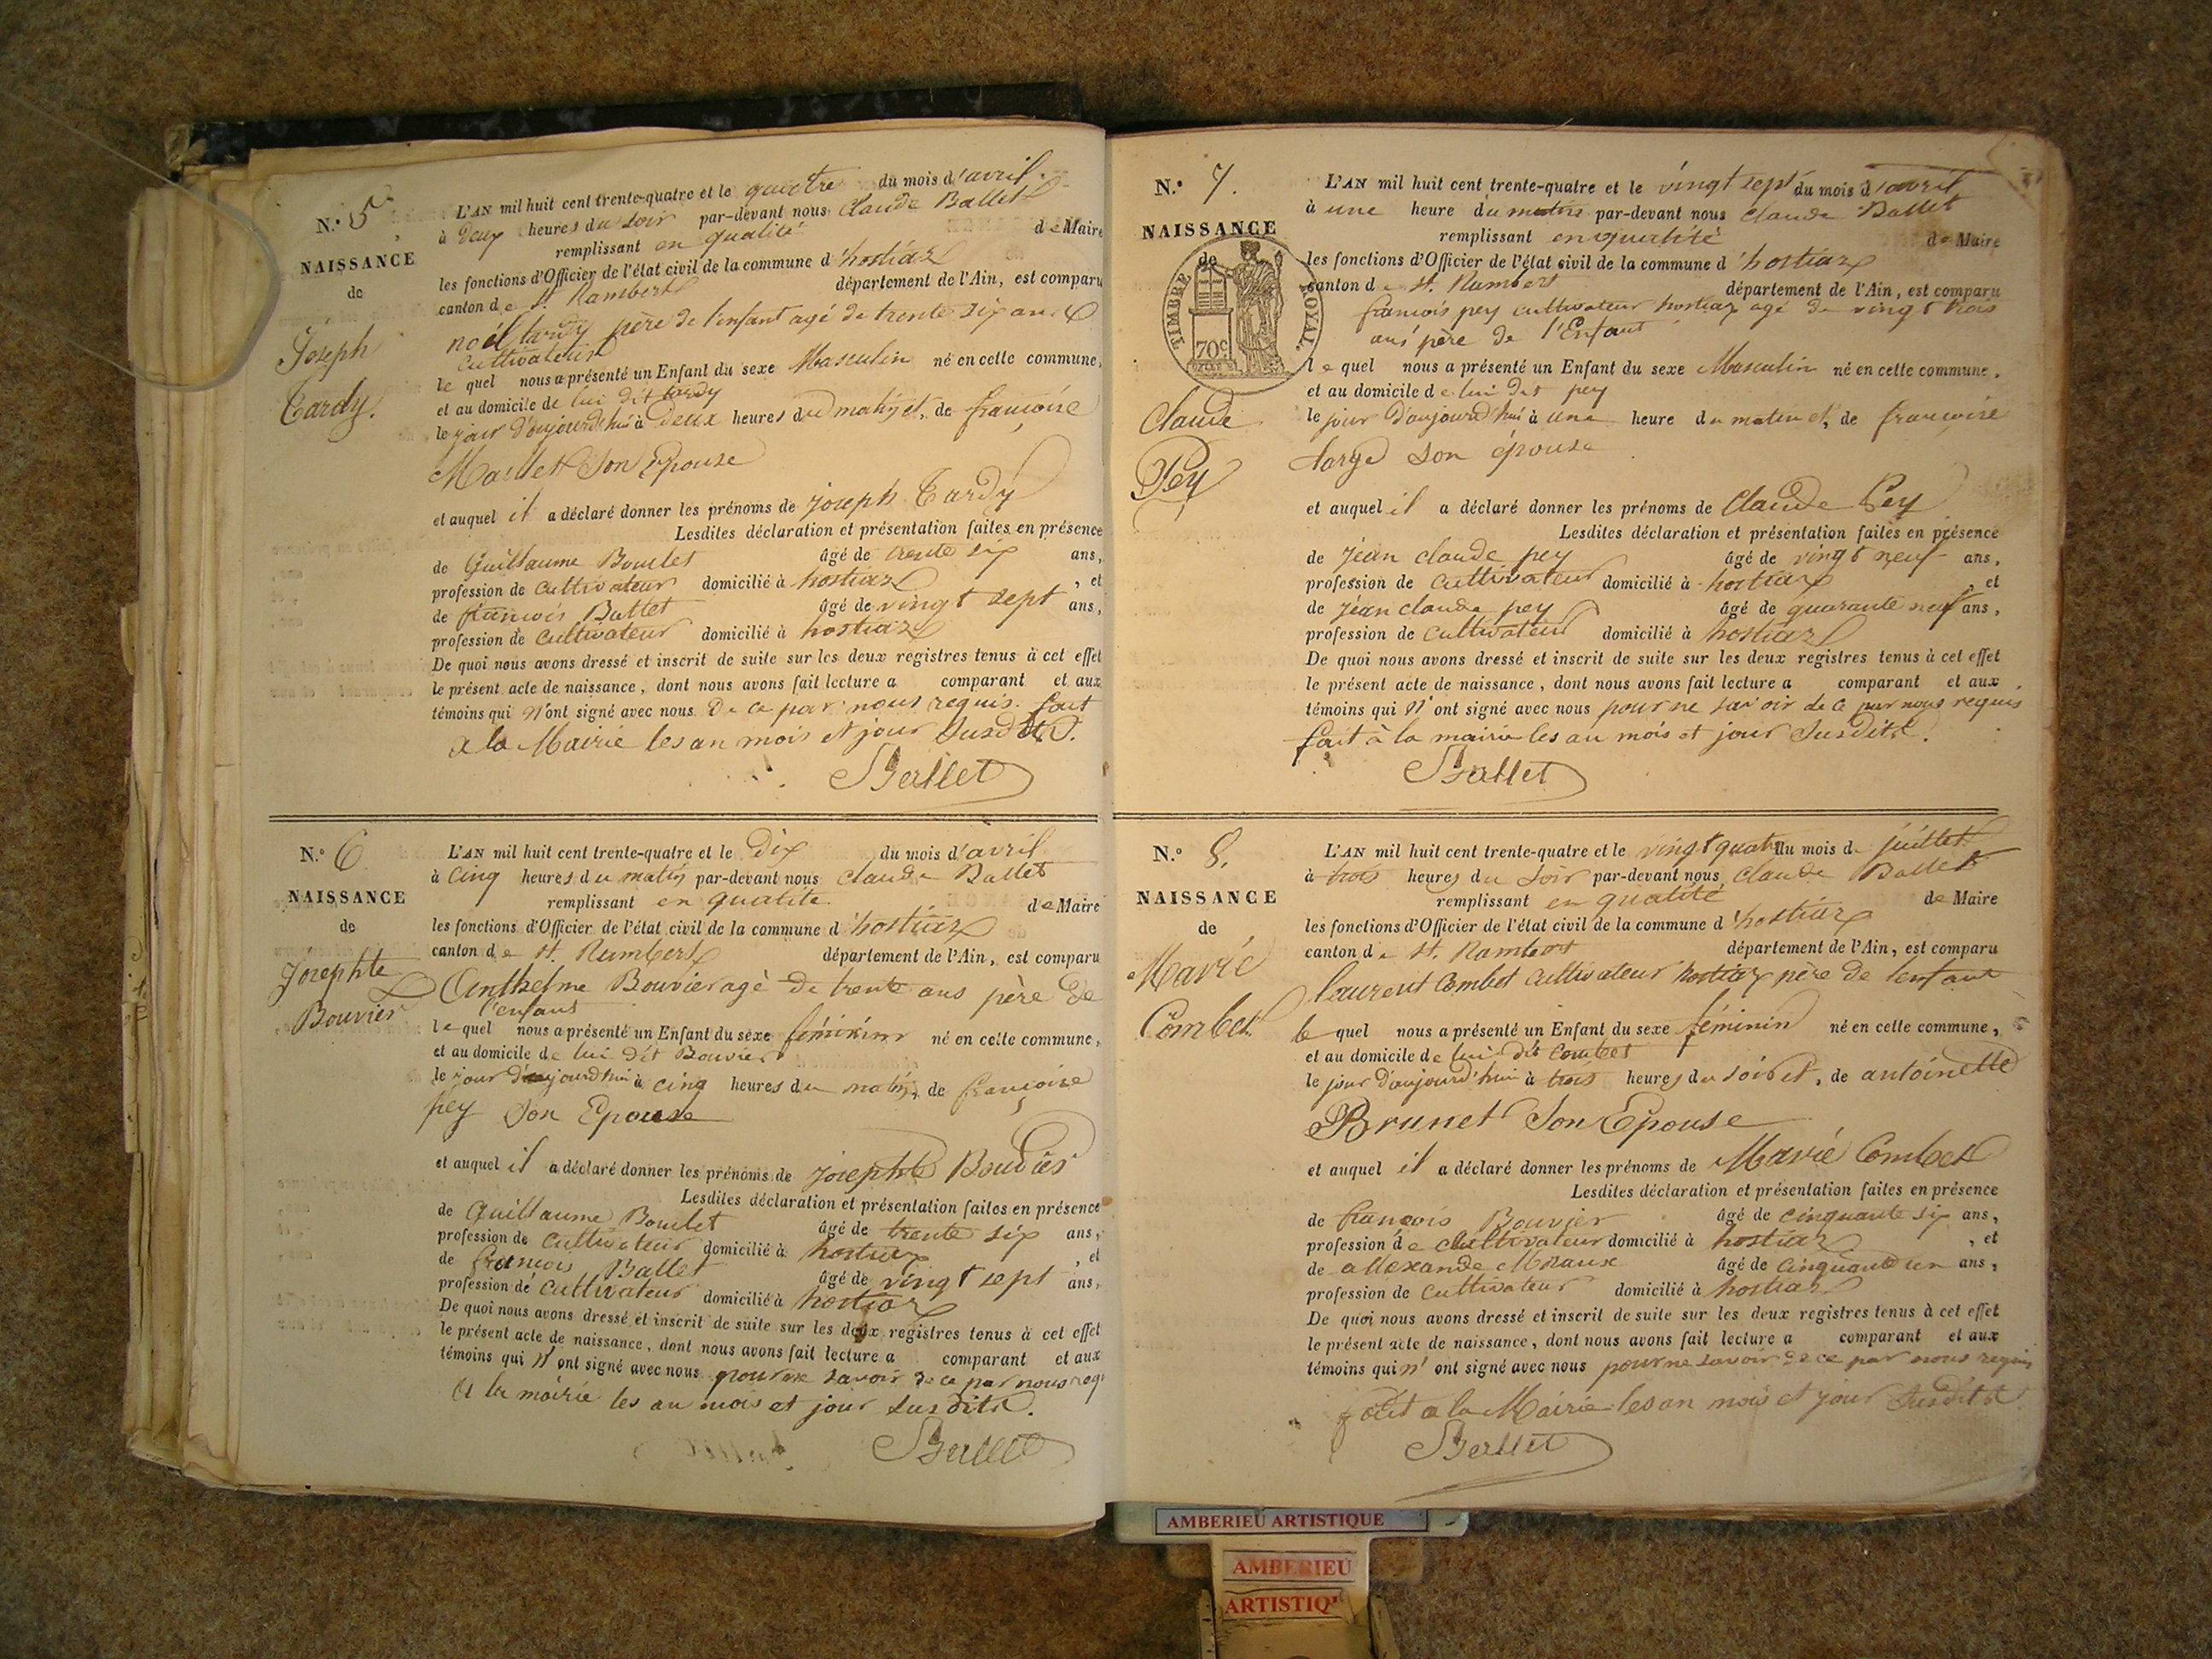 N.º 5
NAISSANCE
de
Joseph
Tardy.
L'AN mil huit cent trente-quatre et le quatre du mois d'avril
à deux heures du soir par-devant nous Claude Ballet
remplissant en qualité de Maire
les fonctions d'Officier de l'état civil de la commune d'hostiaz
canton de St. Rambert département de l'Ain, est comparu
noël tardy père de l'enfant agé de trente six ans
Cultivateur
le quel nous a présenté un Enfant du sexe Masculin né en cette commune,
et au domicile de lui dit tardy
le jour d'aujourd'hui à Deux heures du matin et, de francoise
Maillet Son Epouse
et auquel il a déclaré donner les prénoms de joseph Tardy
Lesdites déclaration et présentation faites en présence
de Guillaume Boulet âgé de trente six ans,
profession de cultivateur domicilié à hostiaz, et
de francois Ballet âgé de vingt sept ans,
profession de cultivateur domicilié à hostiaz
De quoi nous avons dressé et inscrit de suite sur les deux registres tenus à cet effet
le présent acte de naissance, dont nous avons fait lecture a comparant et aux
témoins qui n'ont signé avec nous De ce par nous requis. fait
a la Mairie les an mois et jour Susdits.
Ballet
N.º 6
NAISSANCE
de
Josephte
Bouvier
L'AN mil huit cent trente-quatre et le Dix du mois d'avril
à Cinq heures du matin par-devant nous Claude Ballet
remplissant en qualite de Maire
les fonctions d'Officier de l'état civil de la commune d'hostiaz
canton de St. Rambert département de l'Ain, est comparu
Anthelme Bouvier agè de trente ans père de
l'enfant
le quel nous a présenté un Enfant du sexe féminin né en cette commune,
et au domicile de lui dit Bouvier
le jour d'aujourd'hui à cinq heures du matin, de francoise
pey Son Epouse
et auquel il a déclaré donner les prénoms de josephte Bouvier
Lesdites déclaration et présentation faites en présence
de Guillaume Boulet âgé de trente six ans,
profession de cultivateur domicilié à hostiaz, et
de francois Ballet âgé de vingt sept ans,
profession de cultivateur domicilié à hostiaz
De quoi nous avons dressé et inscrit de suite sur les deux registres tenus à cet effet
le présent acte de naissance, dont nous avons fait lecture a comparant et aux
témoins qui n'ont signé avec nous pour ne savoir de ce par nous requ
A la mairie les an mois et jour susdits.
Ballet
N.º 7.
NAISSANCE
de
TIMBRE ROYAL
70c
Claude
Pey
L'AN mil huit cent trente-quatre et le vingt sept du mois d'avril
à une heure du matin par-devant nous Claude Ballet
remplissant en qualité de Maire
les fonctions d'Officier de l'état civil de la commune d'hostiaz
canton de St. Rambert département de l'Ain, est comparu
francois pey cultivateur hostiaz agé de vingt trois
ans père de l'Enfant
le quel nous a présenté un Enfant du sexe Masculin né en cette commune,
et au domicile de lui dit pey
le jour d'aujourd'hui à une heure du matin et, de francoise
large son épouse
et auquel il a déclaré donner les prénoms de Claude Pey
Lesdites déclaration et présentation faites en présence
de jean claude pey âgé de vingt neuf ans,
profession de cultivateur domicilié à hostiaz, et
de jean claude pey âgé de quarante neuf ans,
profession de cultivateur domicilié à hostiaz
De quoi nous avons dressé et inscrit de suite sur les deux registres tenus à cet effet
le présent acte de naissance, dont nous avons fait lecture a comparant et aux
témoins qui n'ont signé avec nous pour ne savoir de ce par nous requis
fait à la mairie les an mois et jour susdits.
Ballet
N.º 8.
NAISSANCE
de
Marie
Combet
L'AN mil huit cent trente-quatre et le vingt quatre du mois de juillet
à trois heures du soir par-devant nous Claude Ballet
remplissant en qualité de Maire
les fonctions d'Officier de l'état civil de la commune d'hostiaz
canton de St. Rambert département de l'Ain, est comparu
laurent Combet cultivateur hostiaz père de lenfant
le quel nous a présenté un Enfant du sexe féminin né en cette commune,
et au domicile de lui dit Combet
le jour d'aujourd'hui à trois heures du soir et, de antoinette
Brunet Son Epouse
et auquel il a déclaré donner les prénoms de Marie Combet
Lesdites déclaration et présentation faites en présence
de francois Bouvier âgé de cinquante six ans,
profession de cultivateur domicilié à hostiaz, et
de allexande âgé de cinquante un ans,
profession de cultivateur domicilié à hostiaz
De quoi nous avons dressé et inscrit de suite sur les deux registres tenus à cet effet
le présent acte de naissance, dont nous avons fait lecture a comparant et aux
témoins qui n'ont signé avec nous pour ne savoir de ce par nous requis
fait a la Mairie les an mois et jour susdits
Ballet
AMBERIEU ARTISTIQUE
AMBERIEU
ARTISTIQ